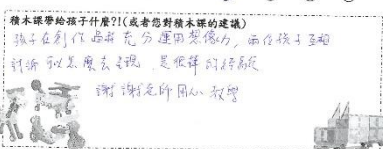 積木課帶給孩子什麼?!(或者您對積木課的建議)
孩子在創作過程充分運用想像力，兩位孩子互相
討論 可以怎麼去呈現，是很棒的經驗
謝謝老師用心教學